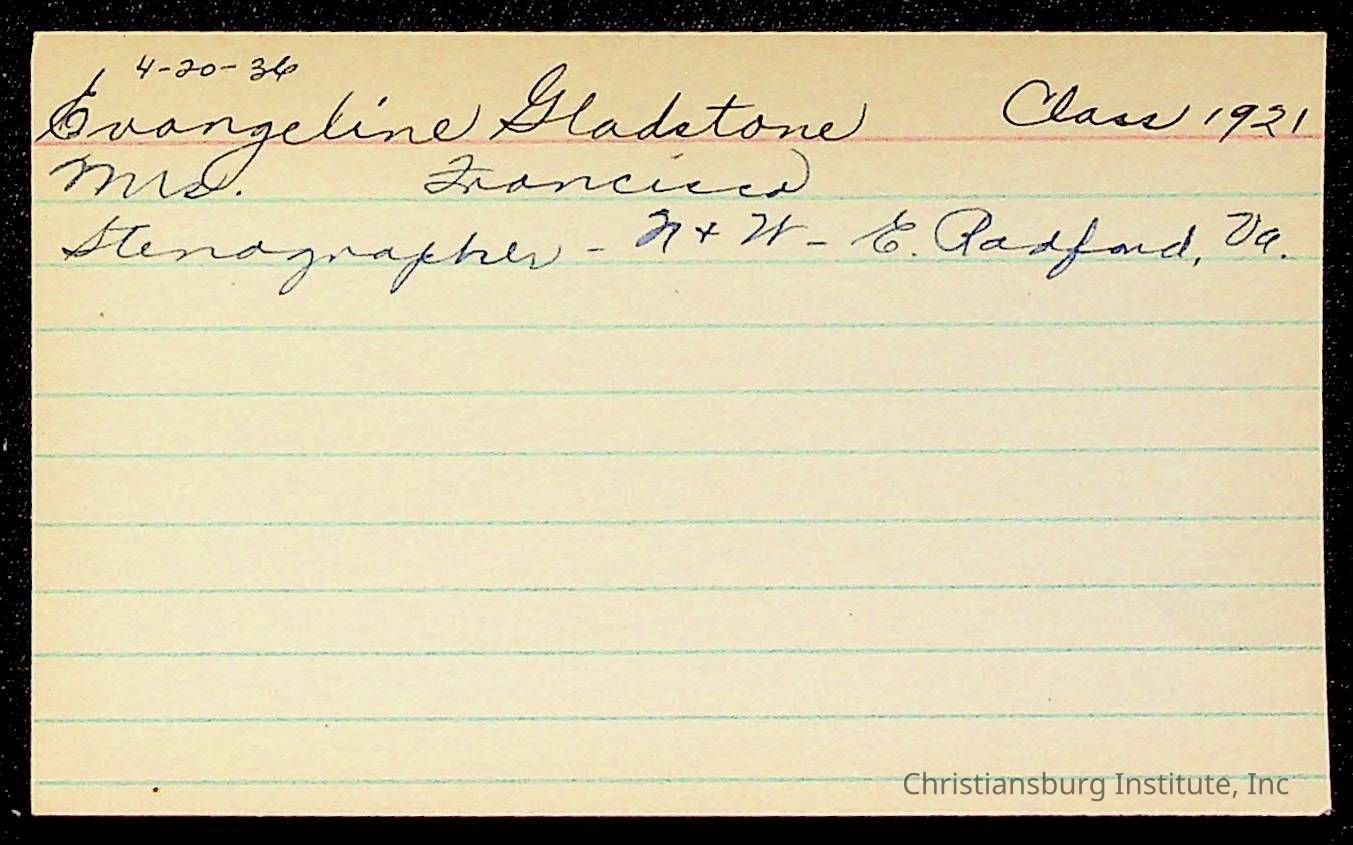 4-20-36
Evangeline Gladstone Class 1921
Mrs. Francisco
Stenographer - N + W - E. Radford, Va.
Christiansburg Institute, Inc